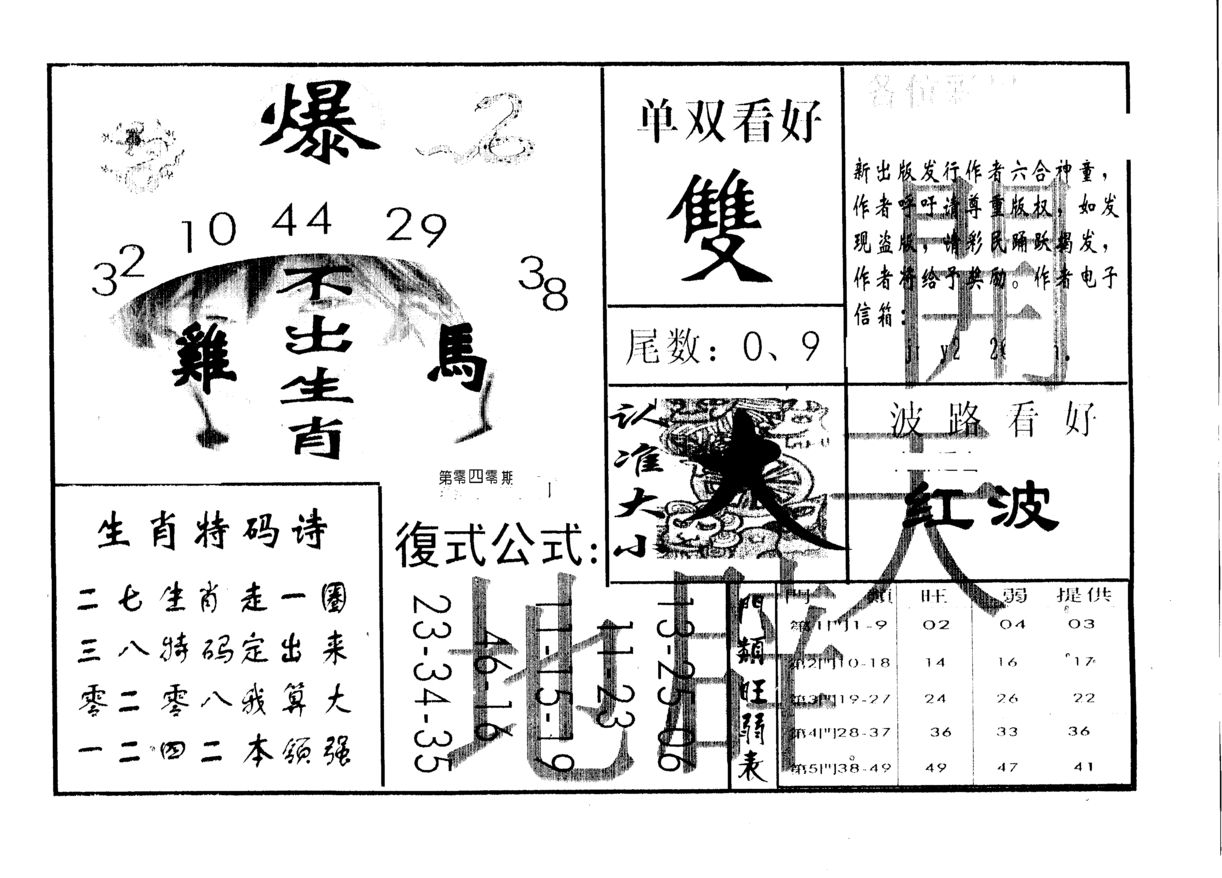 爆
32 10 44 29 38
不出生肖
雞
馬
第零四零期
单双看好
雙
尾数：0、9
各位彩
新出版发行作者六合神童，
作者呼吁请尊重版权，如发
现盗版，请彩民踊跃揭发，
作者将给予奖励。作者电子
信箱：
開
认准大小
大
波路看好
红波
天
生肖特码诗
二七生肖走一圈
三八特码定出来
零二零八我算大
一二四二本领强
復式公式：
23-34-35
46-16
11-15-19
11-23
13-25-06
地
門類旺弱表
門 類 旺 弱 提供
第1門1-9 02 04 03
第2門10-18 14 16 17
第3門19-27 24 26 22
第4門28-37 36 33 36
第5門38-49 49 47 41